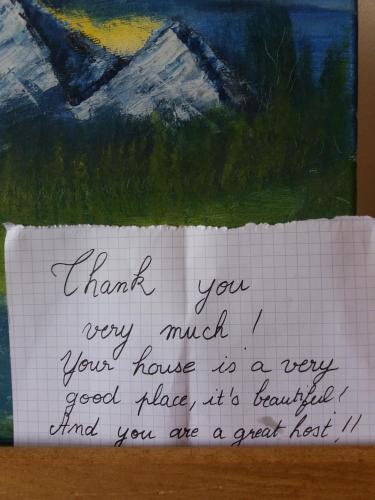 Thank you
very much !
Your house is a very
good place, it's beautiful!
And you are a great host !!